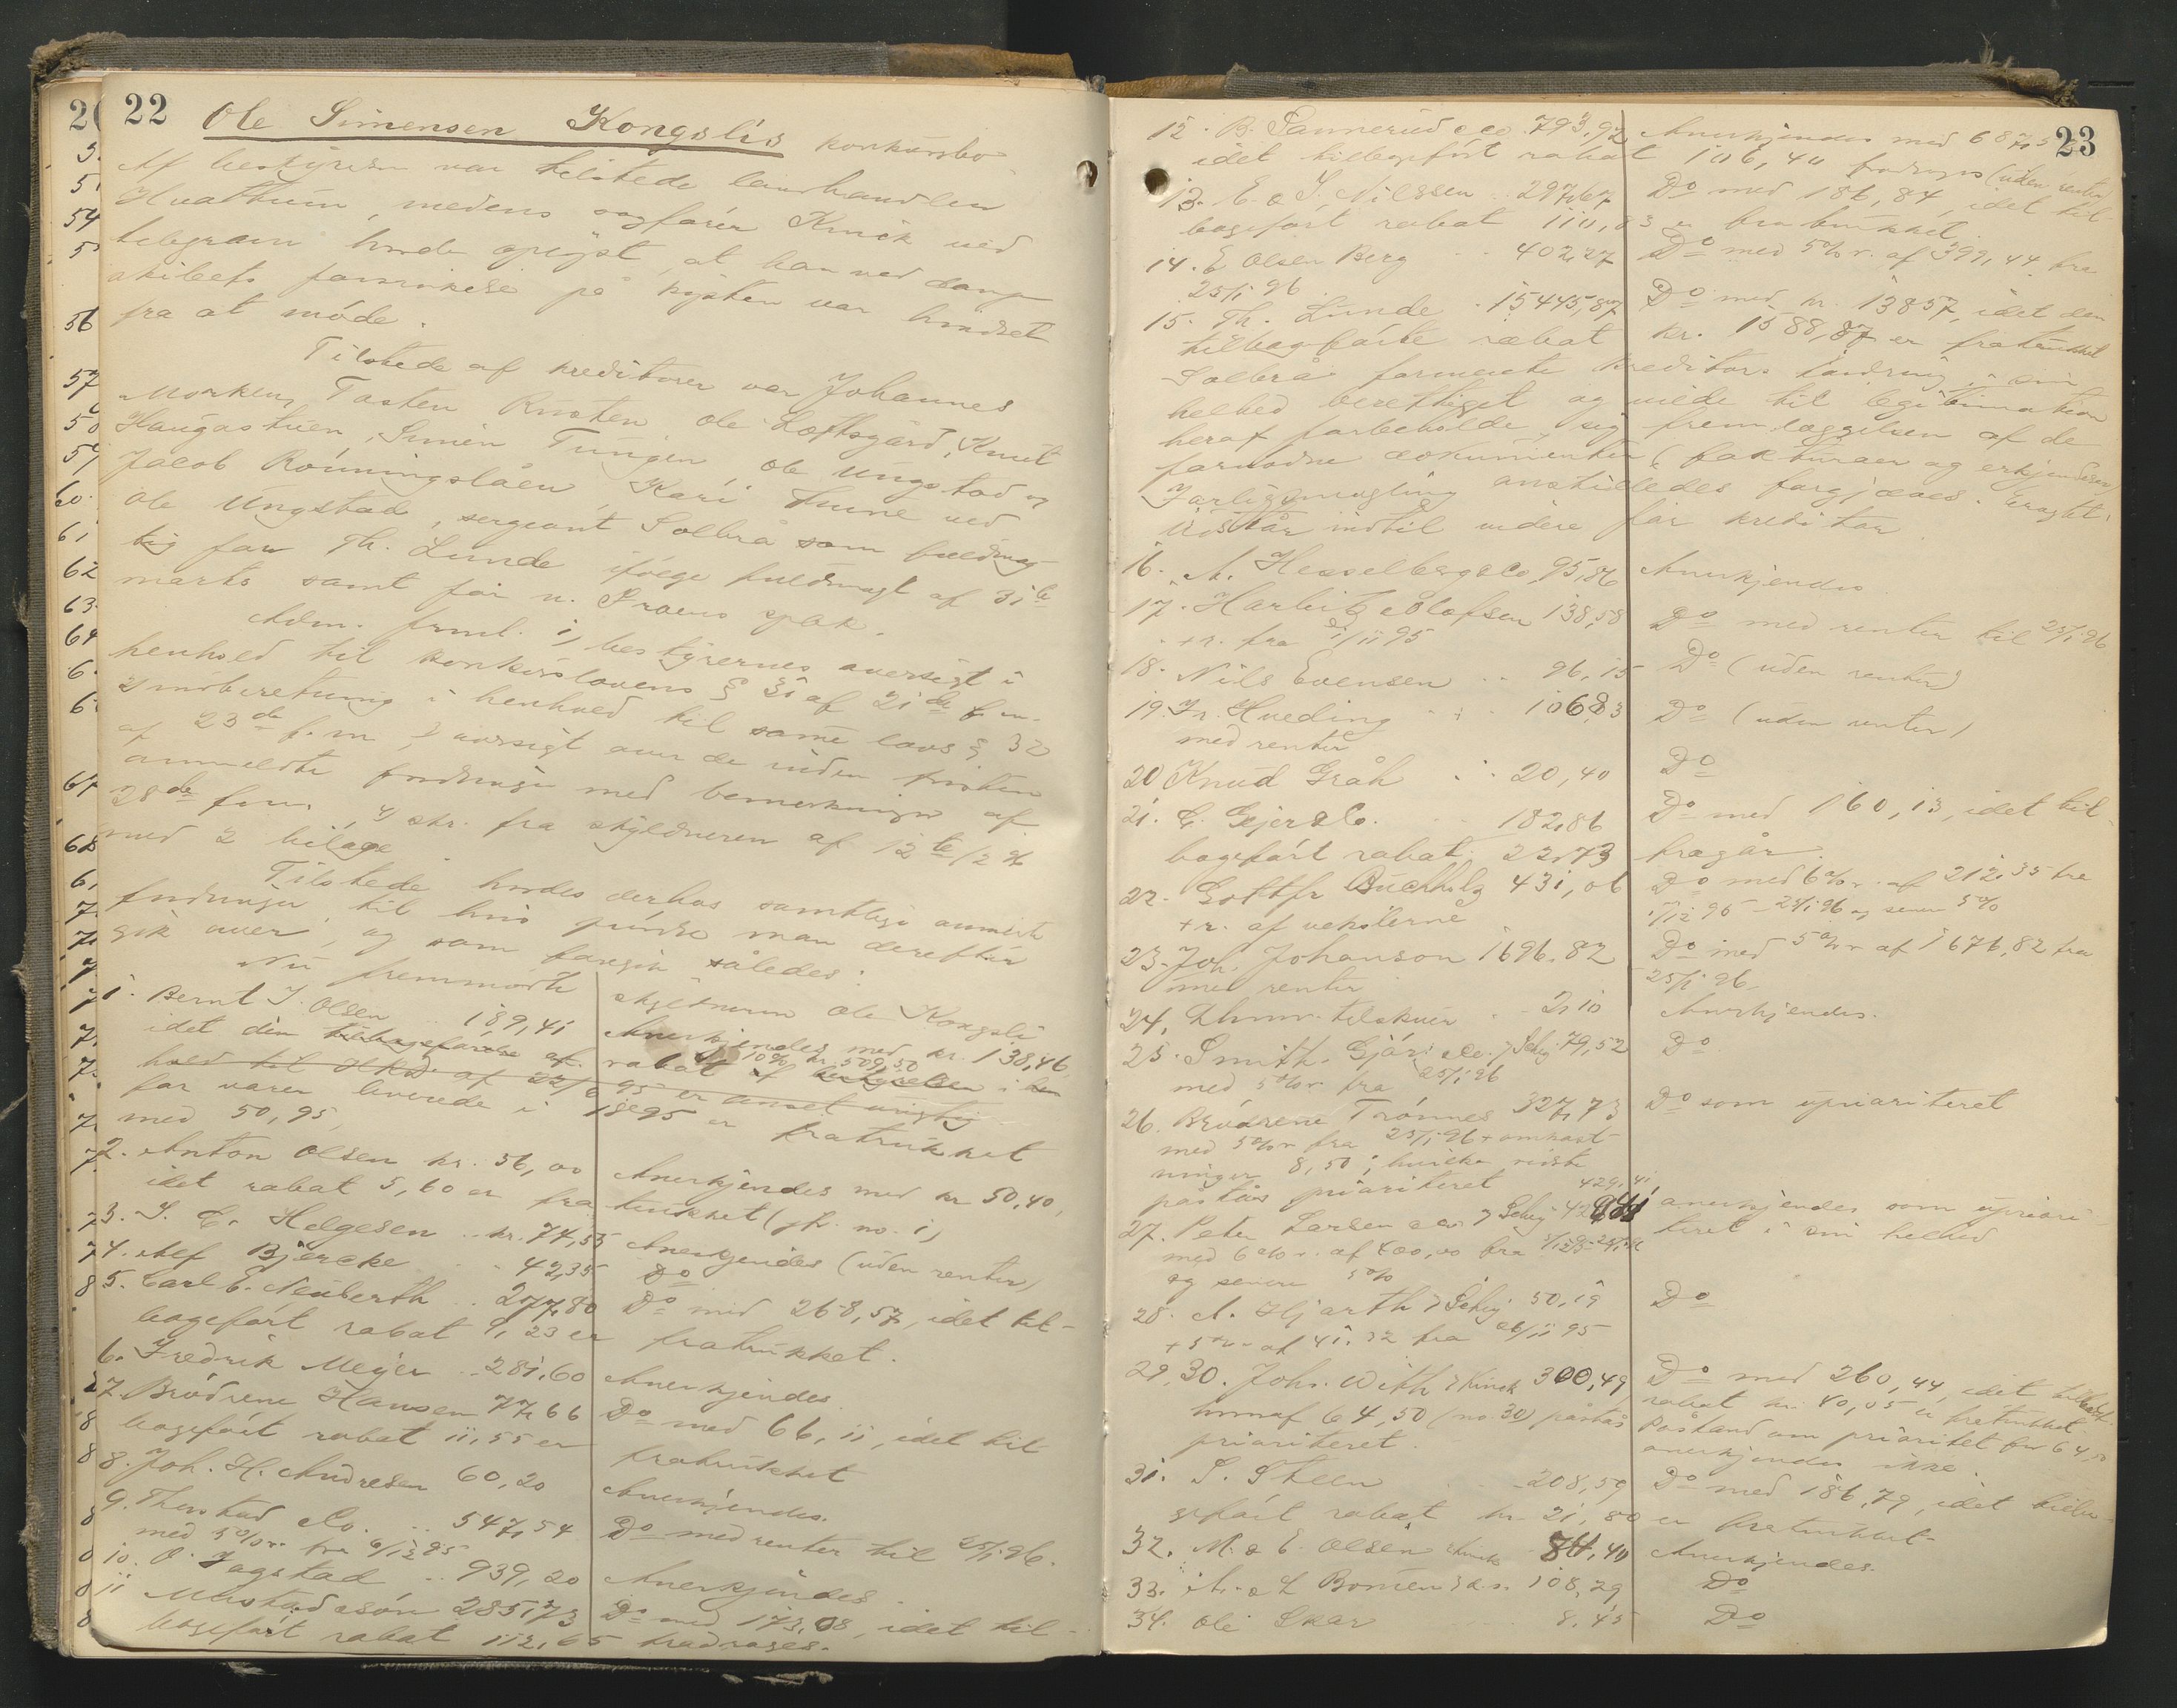 22
Ole Simensen Kongslis konkursbo
Af bestyrelsen var tilstede landhandler
Hvattum, medens sagfører Kinck ved
telegram havde oplyst, at han ved damp
skibets forsinkelse på kysten var hindret
fra at møde.
Tilstede af kreditorer var Johannes
Morken, Tosten Rusten, Ole Loftsgård, Knut
Haugastuen, Simen Tungen, Ole Ungstad og
Jacob Rønningslåen, Kari Thune ved
Ole Ungstad, sergeant Solbrå som fuldmæg
tig for Th. Lunde ifølge fuldmagt af 31te
marts samt for n. Sraens spbk.
Adm. freml. 1, bestyrernes oversigt i
henhold til konkurslovens § 31 af 21de f.m.
2, indberetning i henhold til samme lovs § 32
af 23de f.m. 3, oversigt over de inden fristen
anmeldte fordringer med bemerkninger af
28de f.m., 4, skr. fra skyldneren af 12te/2 96
med 2 bilage
Tilstede havdes derhos samtlige anmeldte
fordringer til hvis prøvelse man derefter
gik over, og som foregik således:
Nu fremmødte skyldneren Ole Kongsli
1. Bernt J. Olsen 189,41 Anerkjendes med kr. 138,46,
idet den tilbageførte af rabat af 10% kr. 509,50 bestyrelsen i hen
hold til af 22/6 95 er anset urigtig
for varer leverede i 1895 er fratrukket
med 50,95,
2. Anton Olsen kr. 56,00 Anerkjendes med kr 50,40,
idet rabat 5,60 er fratrukket (jfr. no. 1)
3. S. C. Helgesen .. kr. 74,55 Anerkjendes (uden renter)
4. Alf Bjercke .. 42,35 Do
5. Carl E. Neuberth .. 277,80 Do med 268,57, idet til-
bageført rabat 9,23 er fratrukket.
6. Fredrik Meyer .. 281,60 Anerkjendes.
7. Brødrene Hansen 77,66 Do med 66,11, idet til
bageført rabat 11,55 er fratrukket
8. Joh. H. Andresen 60,20 Anerkjendes.
9. Thorstad & Co. .. 547,54 Do med renter til 25/1 96.
med 5% r. fra 6/12 95
10. O. Jagstad .. 939,20 Anerkjendes.
11 Mustad & søn 285,73 Do med 173,08, idet til-
bageført rabat 112,65 fradrages.
23
12. B. Sannerud & co. 793,92 Anerkjendes med 687,52
idet tilbageført rabat 106,40 fradrages (uden renter)
13. E. & J. Nilssen .. 297,67 Do med 186,84, idet til-
bageført rabat 110,83 er fratrukket.
14. E Olsen Berg .. 402,27 Do med 5% r. af 399,44 fra
25/1 96
15. Th. Lunde . 15445,87 Do med kr. 13857, idet den
tilbageførte rabat kr. 1588,87 er fratrukket
Solbrå formente kreditors fordring i sin
helhed berettiget og vilde til legitimation
heraf forbeholde sig fremlæggelsen af de
fornødne dokumenter (fakturaer og erkjendelser)
Forligsmægling anstilledes forgjæves.
udstår indtil videre for kreditor
16. A. Hesselberg & Co. 95,86 Anerkjendes
17. Harbitz & Olafsen 138,58 Do med renter til 25/1 96
+ r. fra 21/11 95
18. Nils Evensen .. 96,15 Do (uden renter)
19. Fr. Hveding .. 106,83 Do (uden renter)
med renter
20 Knud Gråh .. 20,40 Do
21. C. Gjer & Co. .. 182,86 Do med 160,13, idet til-
bageført rabat 22,73 fragår.
22. Gottfr Buchholz 431,06 Do med 6% r. af 212,35 fra
+ r. af vekslerne 1/12 95 – 25/1 96 og senere 5%
23. Joh. Johanson 1696.82 Do med 5% r. af 1676,82 fra
med renter 25/1 96.
24. tilskuer .. 2,10 Anerkjendes.
25. Smith. Gjør & Co. 79,52 Do
med 5% r. fra 25/1 96
26. Brødrene Trønnes 327,73 Do som uprioriteret
med 5% r. fra 25/1 96 + omkost-
ninger 8,50; hvilke sidste
påstås prioriteret
27. Peter Larsen & co. 429,41 anerkjendes som upriori-
med 6% r. af 400,00 fra teret i sin helhed
og senere 5%
28. A. Hjorth 50,19 Do
+ 5% r. af 41.32 fra 26/11 95
29, 30. Johs. With 300,49 Do med 260,44, idet tilbagef.
hvoraf 64,50 (no 30) påstås rabat kr. 40,05 er fratrukket.
prioriteret. Påstand om prioritet for 64,50
anerkjendes ikke.
31. S. Steen .. 208,59 Do med 186,79, idet tilba-
geført rabat kr. 21,80 er fratrukket.
32. M. & E. Olsen 70,40 Anerkjendes.
33. A. & L Bomen 108,29 Do
34. Ole Skar 8.45 Do